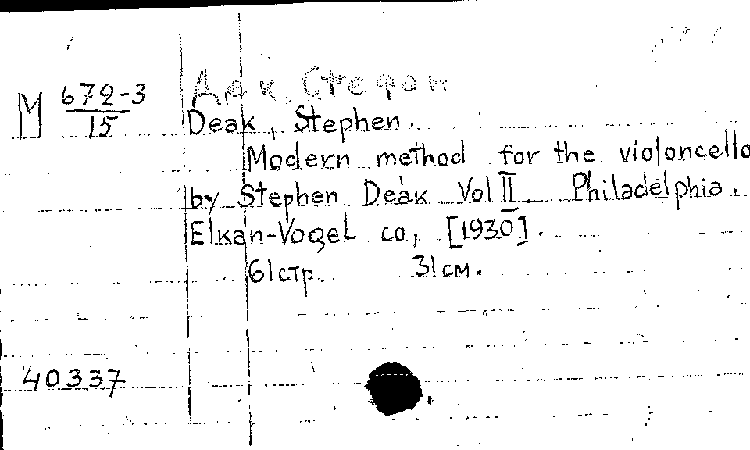 М 672-3
15
Деак, Стефан
Deak, Stephen.
Modern method for the violoncello
by Stephen Deák Vol II. Philadelphia.
Elkan-Vogel co, [1930].
61 стр. 31 см.
40337